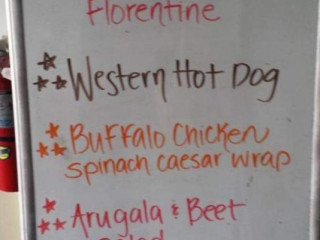 Florentine
Western Hot Dog
Buffalo Chicken
spinach caesar wrap
Arugala & Beet
salad